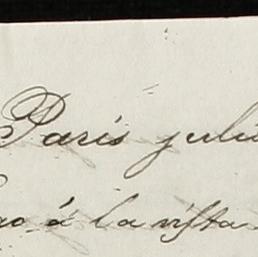 Paris juli
á la vista